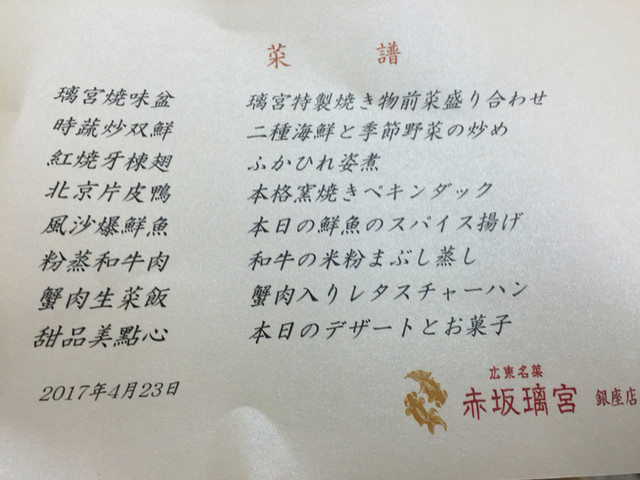 菜譜
璃宮焼味盆 璃宮特製焼き物前菜盛り合わせ
時蔬炒双鮮 二種海鮮と季節野菜の炒め
紅焼牙楝翅 ふかひれ姿煮
北京片皮鴨 本格窯焼きペキンダック
風沙爆鮮魚 本日の鮮魚のスパイス揚げ
粉蒸和牛肉 和牛の米粉まぶし蒸し
蟹肉生菜飯 蟹肉入りレタスチャーハン
甜品美點心 本日のデザートとお菓子
2017年4月23日
広東名菜
赤坂璃宮 銀座店